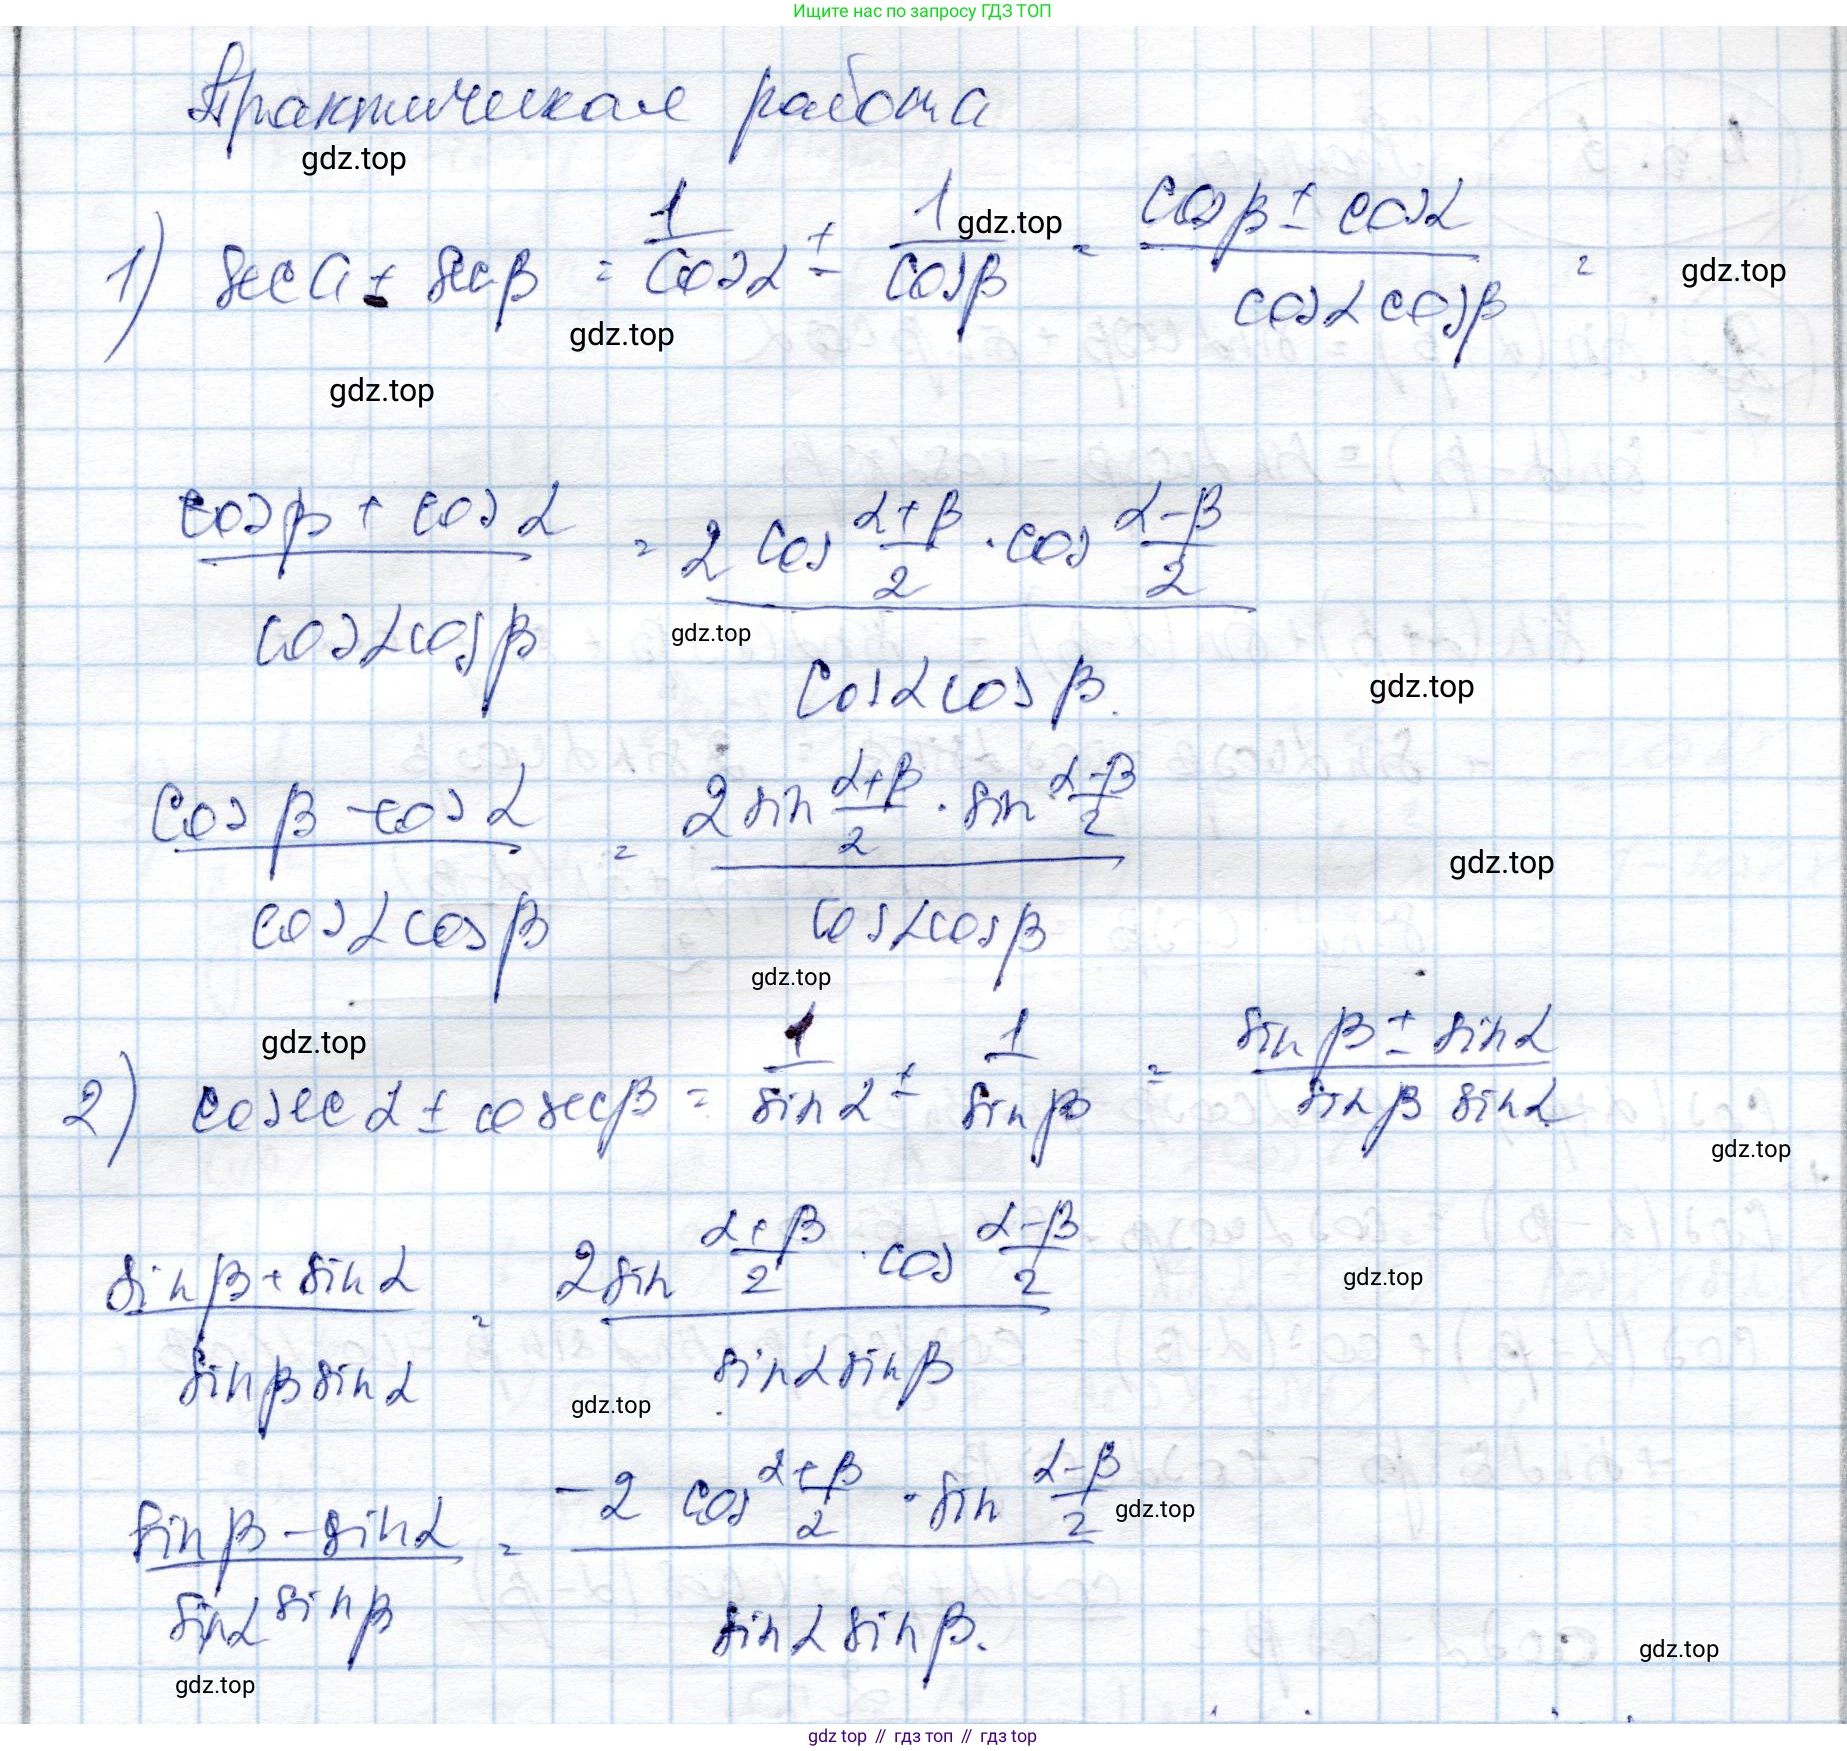 Ищите нас по запросу ГДЗ ТОП
Практическая работа
gdz.top
1) sec α ± sec β = 1/cos α ± 1/cos β = (cos β ± cos α)/(cos α cos β) =
gdz.top
gdz.top
gdz.top
gdz.top
(cos β + cos α)/(cos α cos β) = (2 cos (α+β)/2 · cos (α-β)/2)/(cos α cos β).
gdz.top
gdz.top
(cos β - cos α)/(cos α cos β) = (2 sin (α+β)/2 · sin (α-β)/2)/(cos α cos β)
gdz.top
gdz.top
gdz.top
2) cosec α ± cosec β = 1/sin α ± 1/sin β = (sin β ± sin α)/(sin β sin α)
gdz.top
(sin β + sin α)/(sin β sin α) = (2 sin (α+β)/2 · cos (α-β)/2)/(sin α sin β)
gdz.top
gdz.top
(sin β - sin α)/(sin α sin β) = (-2 cos (α+β)/2 · sin (α-β)/2)/(sin α sin β).
gdz.top
gdz.top
gdz.top
gdz top // гдз топ // гдз top